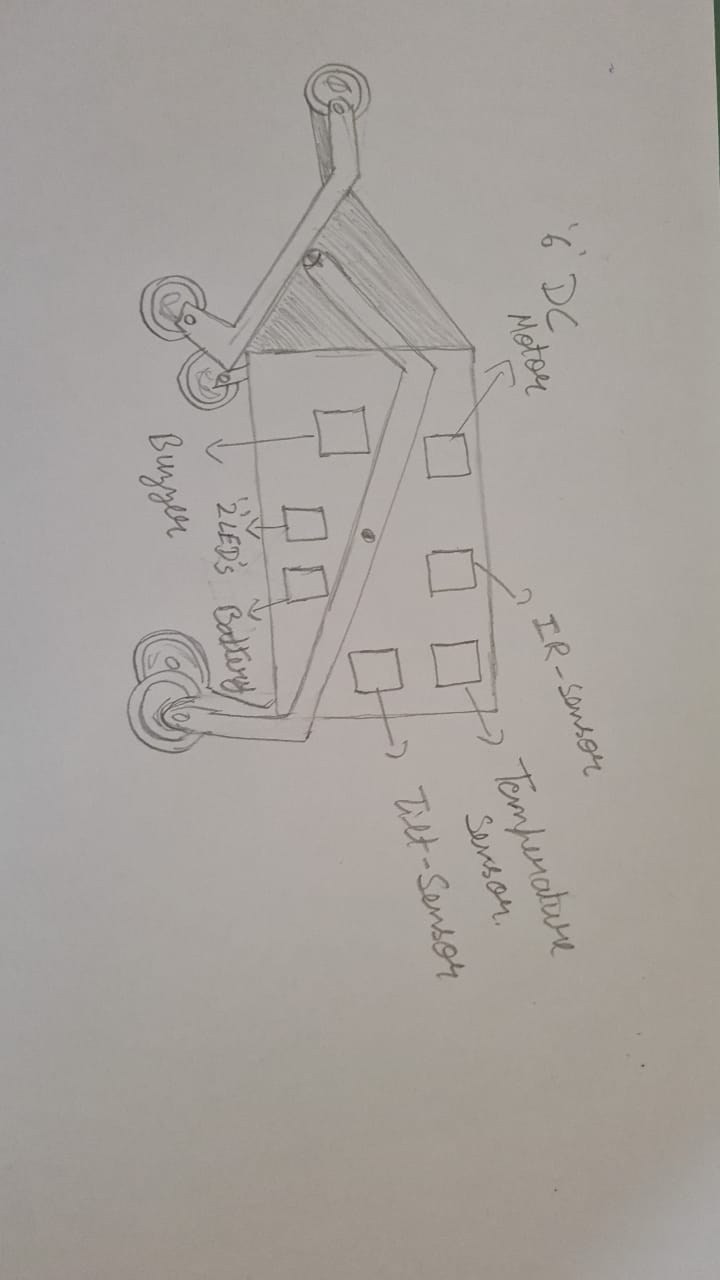 '6' DC
Motor
IR-Sensor
Temperature
Sensor.
Tilt-Sensor
'2' LED's
Battery
Buzzer